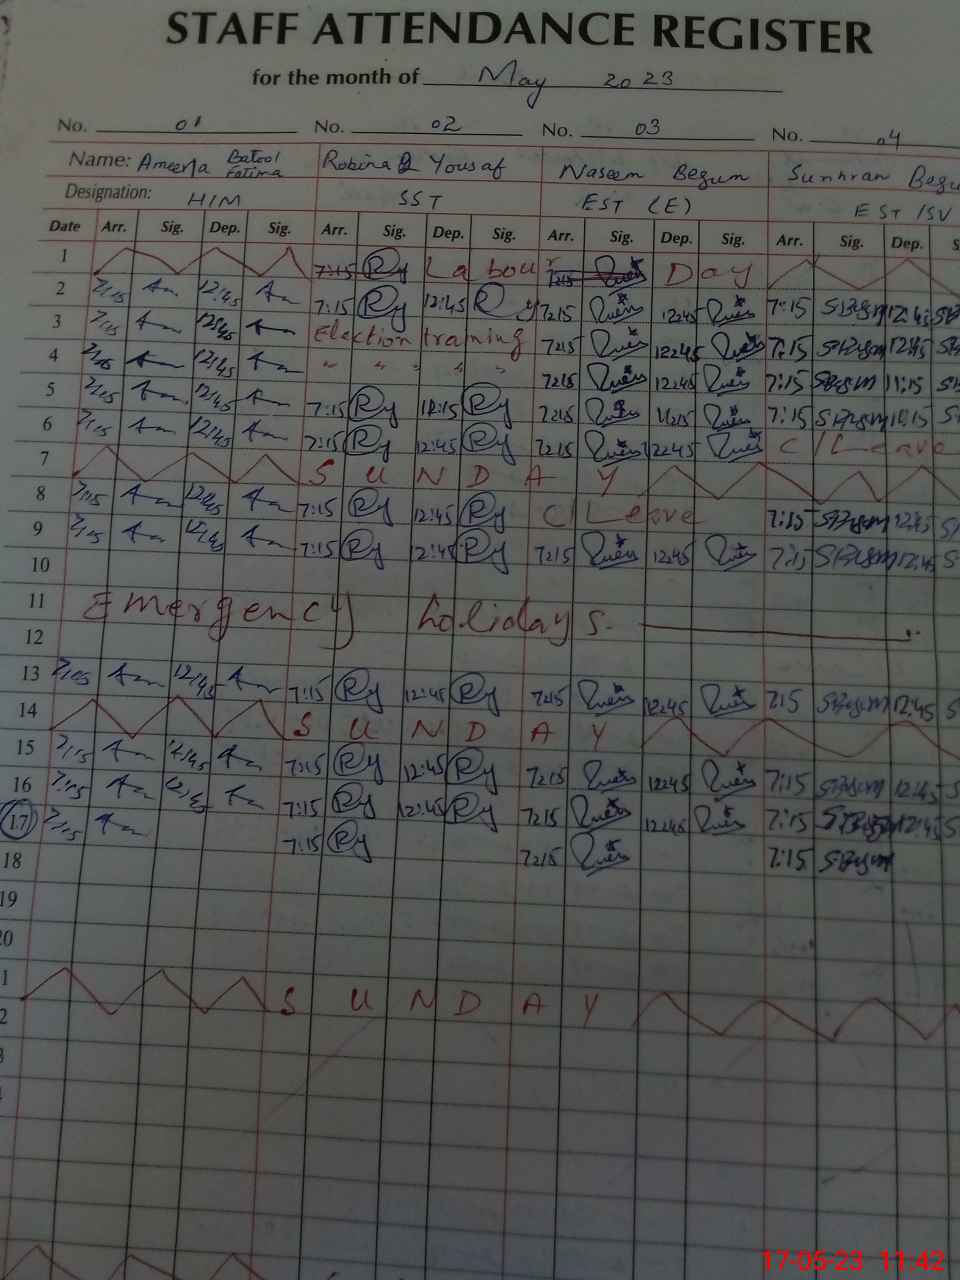 STAFF ATTENDANCE REGISTER
for the month of May 2023
No. 01 No. 02 No. 03 No. 04
Name: Ameena Batool Fatima Robina Yousaf Naseem Begum
Designation: H/M SST EST (E) EST /SV
Date Arr. Sig. Dep. Sig. Arr. Sig. Dep. Sig. Arr. Sig. Dep. Sig. Arr. Sig. Dep. S
1 7:15 Ry Labour 7:15 Day
2 7:15 12:45 7:15 Ry 12:45 Ry 7:15 12:45 7:15 SBgum 12:45
3 7:15 12:45 Election training 7:15 12:45 7:15 SBgum 12:45
4 7:15 12:45 " " " " " 7:15 12:45 7:15 SBgum 11:15
5 7:15 12:45 7:15 Ry Ry 7:15 7:15 SBgum
6 7:15 12:45 7:15 Ry 12:45 Ry 7:15 12:45 C/Leave
7 SUNDAY
8 7:15 12:45 7:15 Ry 12:45 Ry C/Leave 7:15 SBgum 12:45
9 7:15 12:45 7:15 Ry 12:45 Ry 7:15 12:45 7:15 SBgum 12:45
10
11 Emergency holidays.
12
13 7:15 12:45 7:15 Ry 12:45 Ry 7:15 12:45 7:15 SBgum 12:45
14 SUNDAY
15 7:15 12:45 7:15 Ry 12:45 Ry 7:15 12:45 7:15 SBgum 12:45
16 7:15 12:45 7:15 Ry 12:45 Ry 7:15 12:45 7:15 SBgum 12:45
17 7:15 7:15 Ry 7:15 7:15 SBgum
18
19
20
1 SUNDAY
2
3
17-05-23 11:42